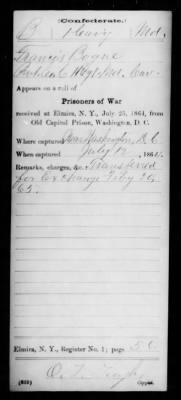 (Confederate.)
B Henry Md.
Francis Boyne
Private C H Bgt. Md. Cav.
Appears on a roll of
Prisoners of War
received at Elmira, N. Y., July 25, 1864, from
Old Capitol Prison, Washington, D. C.
Where captured Near Washington, D. C.
When captured July 12, 1864.
Remarks, charges, &c. Transferred
for Exchange Feby 20
65.
Elmira, N. Y., Register No. 1; page 50
Copyist.